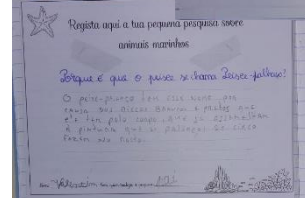 Regista aqui a tua pequena pesquisa sobre
animais marinhos
Porque é que o peixe se chama Peixe-palhaço?
O peixe-palhaço tem esse nome por
causa das riscas brancas e pretas que
ele tem pelo corpo, que se assemelham
à pintura que os palhaços do circo
fazem no rosto.